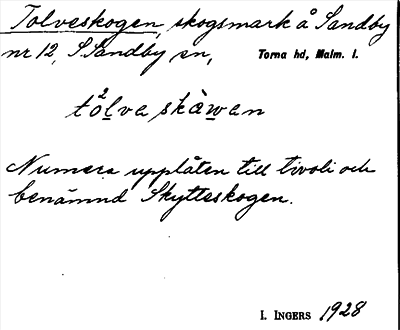 Tolveskogen, skogsmark å Sandby
nr 12, S Sandby sn, Torna hd, Malm. l.
tò²lva skàwan
Numera upplåten till tivoli och
benämnd Skytteskogen.
I. INGERS 1928